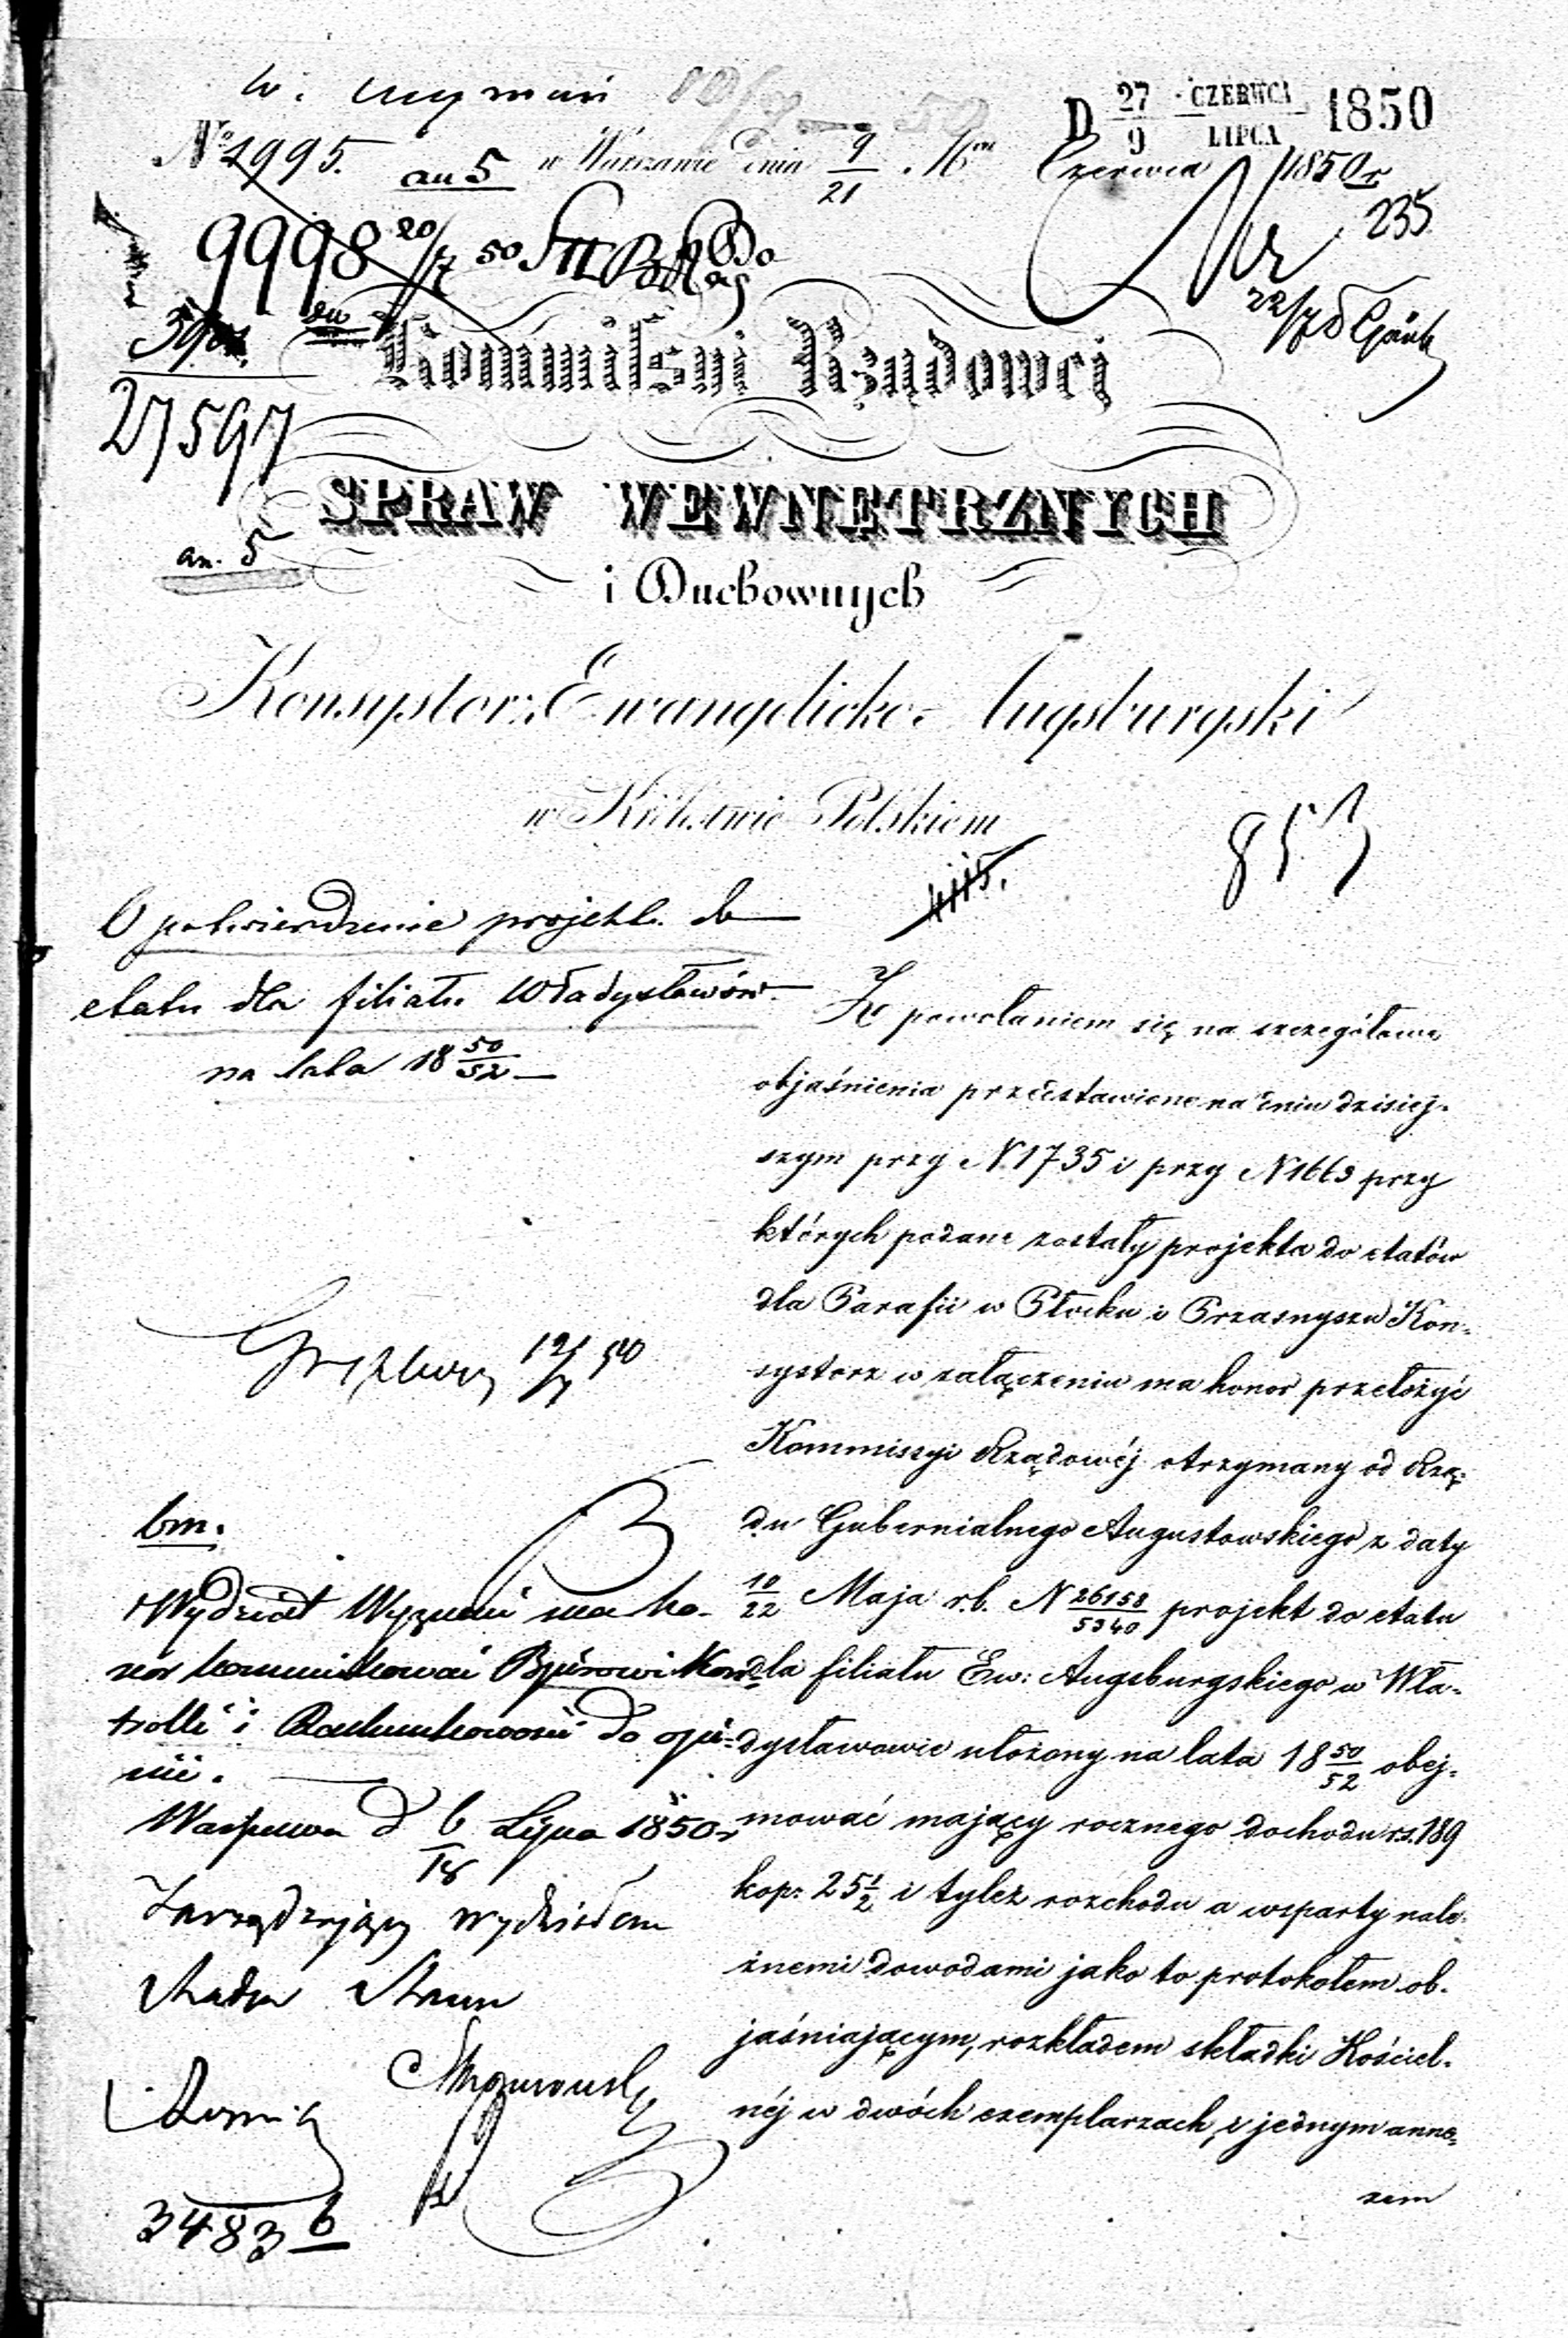 D 27/9 CZERWCA/LIPCA 1850
№ 1995. an 5 w Warszawie dnia 9/21 Czerwca 1850 r
235
9998 20/7 50
27597
Kommissyi Rządowej
SPRAW WEWNĘTRZNYCH
an. 5
i Duchownych
Konsystorz Ewangelicko-Augsburgski
w Królestwie Polskiem
853
1115.
O potwierdzenie projektu do
etatu dla filiału Władysławów
na lata 18 50/52
Z powołaniem się na szczegółowe
objaśnienia przedstawione na dniu dzisiej-
szym przy N 1735 i przy N 1663 przy
których podane zostały projekta do etatów
dla Parafii w Płocku i Przasnyszu Kon-
systorz w załączeniu ma honor przełożyć
Kommissyi Rządowéj otrzymany od Rzą-
du Gubernialnego Augustowskiego z daty
10/22 Maja r.b. N 26158/5340 projekt do etatu
dla filiału Ew: Augsburgskiego w Wła-
dysławowie ułożony na lata 18 50/52 obej-
mować mający rocznego dochodu rs. 189
kop: 25 1/2 i tyleż rozchodu a wsparty nale-
żnemi dowodami jako to protokołem ob-
jaśniającym, rozkładem składki Kościel-
néj w dwóch exemplarzach, i jednym anne-
xem
12/7 50
bm.
Wydział Wyznań ma ho-
nor kommunikować Biórowi Kon-
trolli i Rachunkowości do opi-
nii.
Warszawa d 6/18 Lipca 1850 r
Zarządzający Wydziałem
Radca Stanu
3483 6